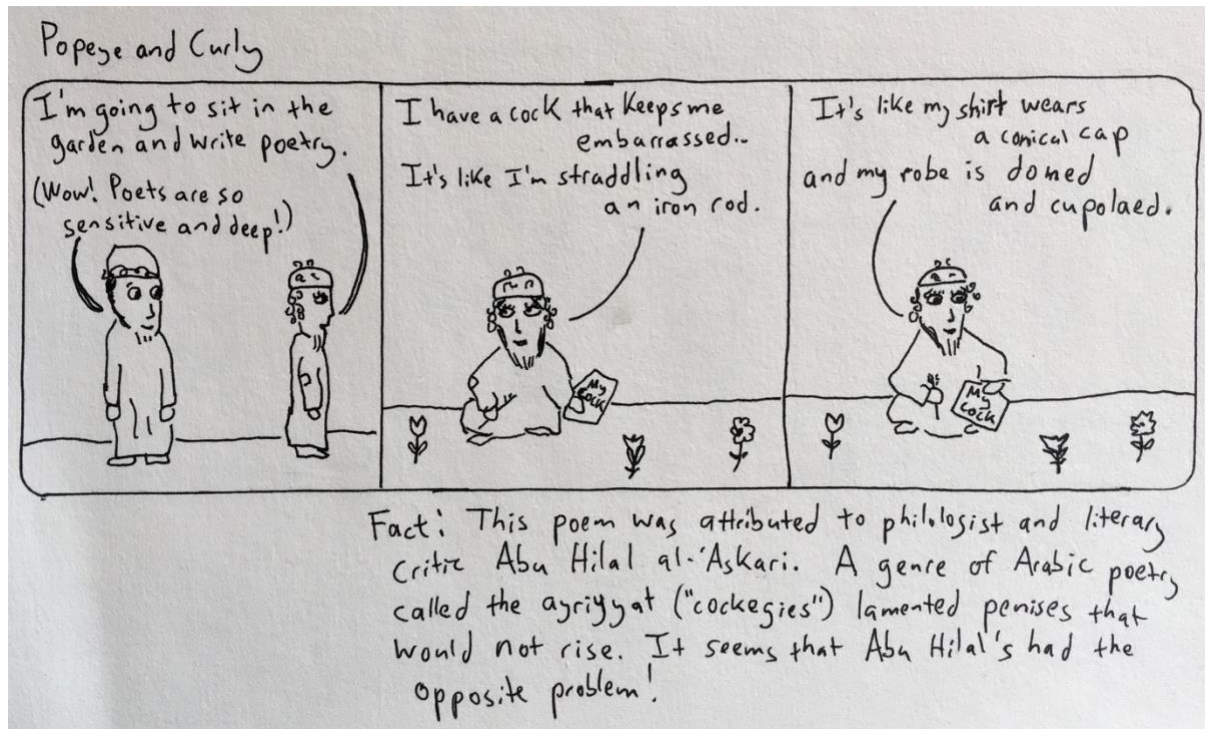 Popeye and Curly
I'm going to sit in the
garden and write poetry.
(Wow! Poets are so
sensitive and deep!)
I have a cock that keeps me
embarrassed..
It's like I'm straddling
an iron rod.
My
Cock
It's like my shirt wears
a conical cap
and my robe is domed
and cupolaed.
My
Cock
Fact: This poem was attributed to philologist and literary
critic Abu Hilal al-'Askari. A genre of Arabic poetry
called the ayriyyat ("cockegies") lamented penises that
would not rise. It seems that Abu Hilal's had the
opposite problem!